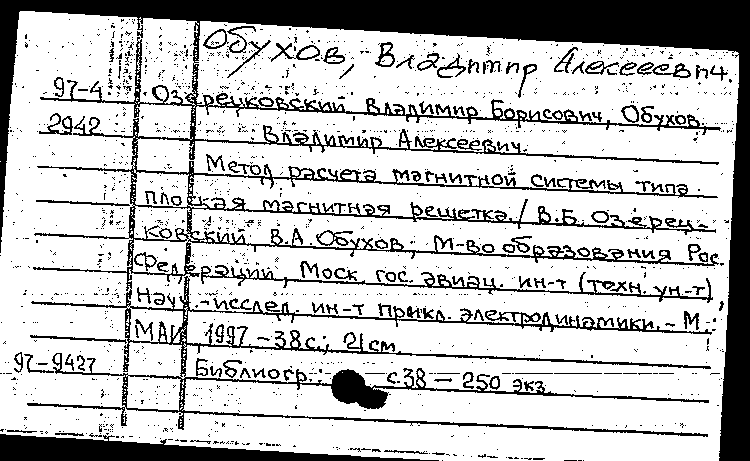 Обухов, Владимир Алексеевич.
97-4 Озерецковский, Владимир Борисович, Обухов,
2942 Владимир Алексеевич.
Метод расчета магнитной системы типа
плоская магнитная решетка. / В.Б. Озерец-
ковский, В.А. Обухов; М-во образования Рос.
Федерации, Моск. гос. авиац. ин-т (техн. ун-т),
Науч.-исслед. ин-т прикл. электродинамики. - М.:
МАИ 1997. - 38 с.; 21 см.
97-9427 Библиогр.: с. 38 — 250 экз.